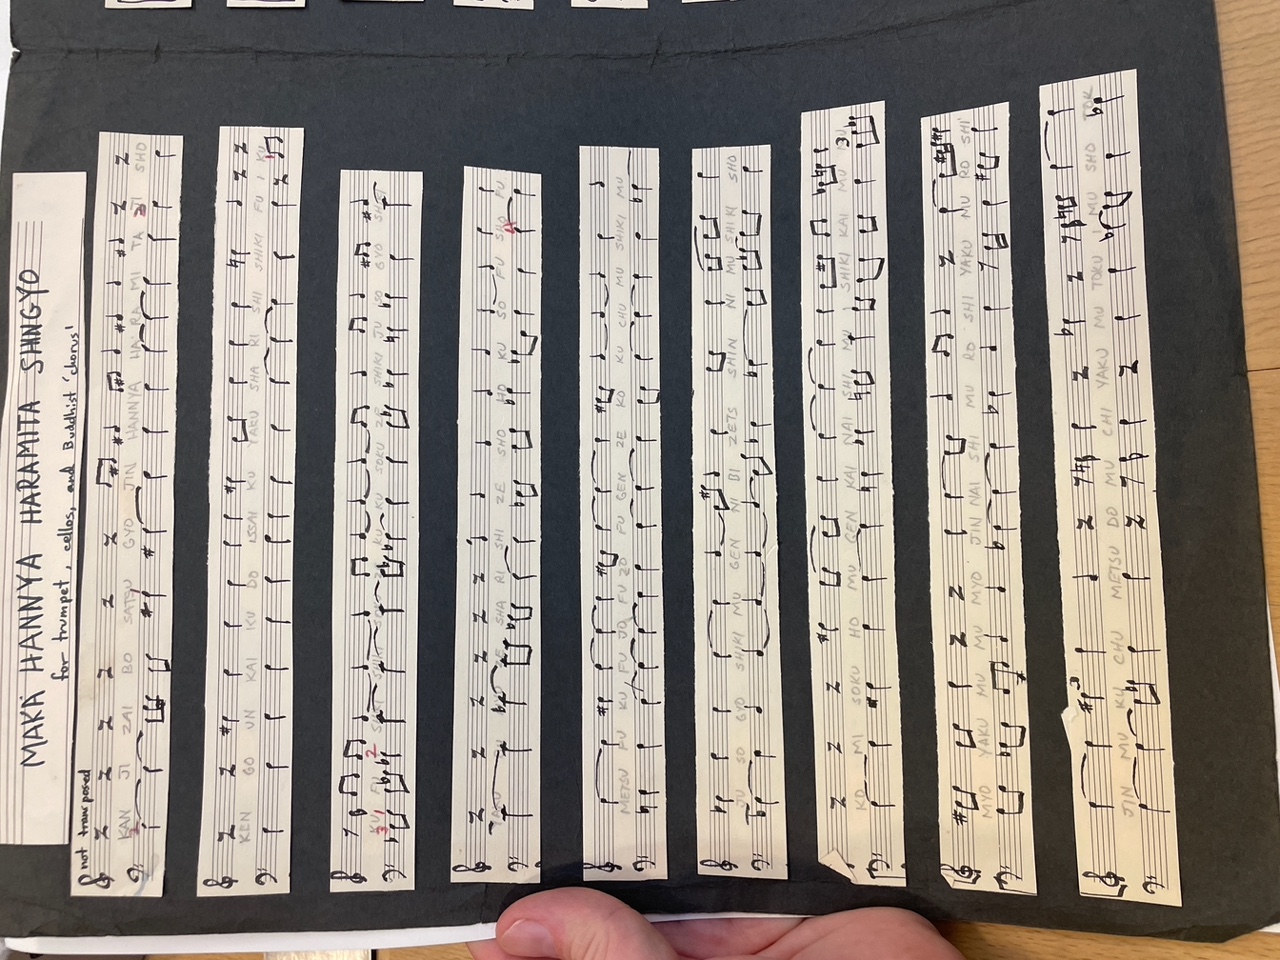 MAKA HANNYA HARAMITA SHINGYO
for trumpet, cellos, and Buddhist 'chorus'
not transposed
KAN JI ZAI BO SATSU GYO JIN HANNYA HA RA MI TA JI SHO
KEN GO UN KAI KU DO ISSAI KU YAKU SHA RI SHI SHIKI FU I KU
KU FU SHIKI SOKU ZE SHIKI JU SO GYO SHIKI
YAKU ZE SHA RI SHI ZE SHO HO KU SO FU SHO FU
METSU FU KU FU JO FU ZO FU GEN ZE KO KU CHU MU SHIKI MU
JU SO GYO SHIKI MU GEN NI BI ZETS SHIN NI MU SHIKI SHO
KO MI SOKU HO MU GEN KAI NAI SHI MU I SHIKI KAI MU MU
MYO YAKU MU MU MYO JIN NAI SHI MU RO SHI YAKU MU RO SHI
JIN MU KU CHU METSU DO MU CHI YAKU MU TOKU I MU SHO TOK